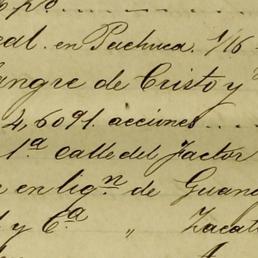 eal. en Pachuca. 1/16
Sangre de Cristo y
4,6091. acciones
1ª calle del Factor
en lign. de Guana
y Cª " Zacate